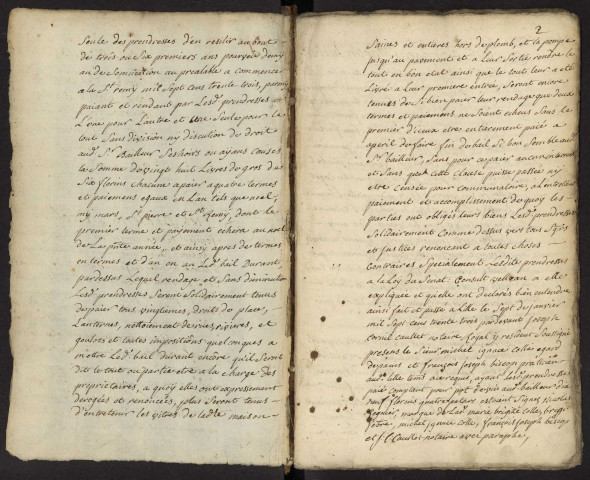 Seule des prendresses d'en resilir au bout
de trois ou Six premiers ans pourveu demy
an de Somication au prealable a commencé
a la St. remy mil Sept cens trente trois, parmy
paiant et rendant par Lesd. prendresses un
L'une pour L'autre et une Seule pour le
tout Sans division ny discution de droit
aud. Sr. Bailleur Ses hoirs ou ayans causes
la Somme de vingt huit Livres de gros de
Six florins chacune apaier a quatre termes
et paiemens egaux en L'an tels que noel,
my mars, St. pierre et St. Remy, dont le
premier terme et payement echera au noel
de La pnte année, et ainsy apres de termes
en termes et d'an en an Led. bail Durant
pardessus Lequel rendage et Sans diminution
Lesd. prendresses Seront Solidairement tenus
de paier tous vingtiemes, droits de places,
Lanternes, nettoiement des rues, rivieres, et
goulots et toutes impositions quelconques a
mettre Led. bail durant encore qu'il Seroit
dit le tout ou partie etre a la charge des
proprietaires, a quoy elles ont expressement
derogées et renoncées, plus Seront tenus
d'entretenir les vitres de lade. maison
2
Saines et entieres hors de plomb, et la pompe
jusqu'au payement et a Leur Sortie rendre le
tout en bon etat ainsi que le tout leur a eté
Livré a Leur premiere entrée, Seront encore
tenues de Si bien paier leur rendage que deux
termes et paiemens ne Soient echeus Sans le
premier d'iceux etre entierement paié a
peril de faire fin du bail Si bon Semble aud.
Sr. bailleur, Sans pour ce paier aucun
et Sans que cette Clause puisse passée ny
etre censée pour comminatoire, a L'entretenement
paiement et accomplissement de quoy les
parties ont obligés leurs biens Lesd. prendresses
Solidairement Comme dessus vers tous Sgrs
et justices renoncant a toutes choses
Contraires Specialement Lesdites prendresses
a la Loy du Senat Consult velleian a elle
expliquée et qu'elle ont declarés bien entendre
ainsi fait et passé a Lille le Sept de janvier
mil Sept cens trente trois pardevant joseph
Cornil cauttet notaire Royal y resident Soussigné
presens le Sieur michel ignace colle
et françois joseph biscop praticien
aud. Lille temoins aïerequis, ayant Lesd. prendresses
paié comptant pour pot de vin aud. bailleur dix
neuf florins quatre patars etoient Signés nicolas
marque de lad. marie brigitte colle, brigitte
michel ignace colle, françois joseph biscop
et J C Cauttet notaire avec paraphe,